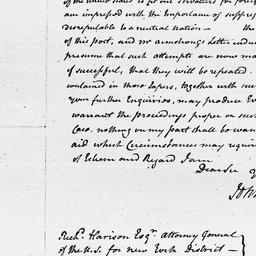 of the United States to fit out Privateers for foreig
am impressed with the Importance of suppress
disreputable to a neutral nation — the
of this port, and Mr Armstrongs Letter induce
presume that such attempts are now ma
if successful, that they will be repeated.
contained in those Papers, together with such
your further Enquiries, may produce Ev
warrant the proceedings proper on such
Law. nothing on my part shall be want
aid which Circumstances may requi
of Esteem and Regard I am
Dear Sir
Richd. Harison Esqr. Attorney General
of the U.S. for new York District —